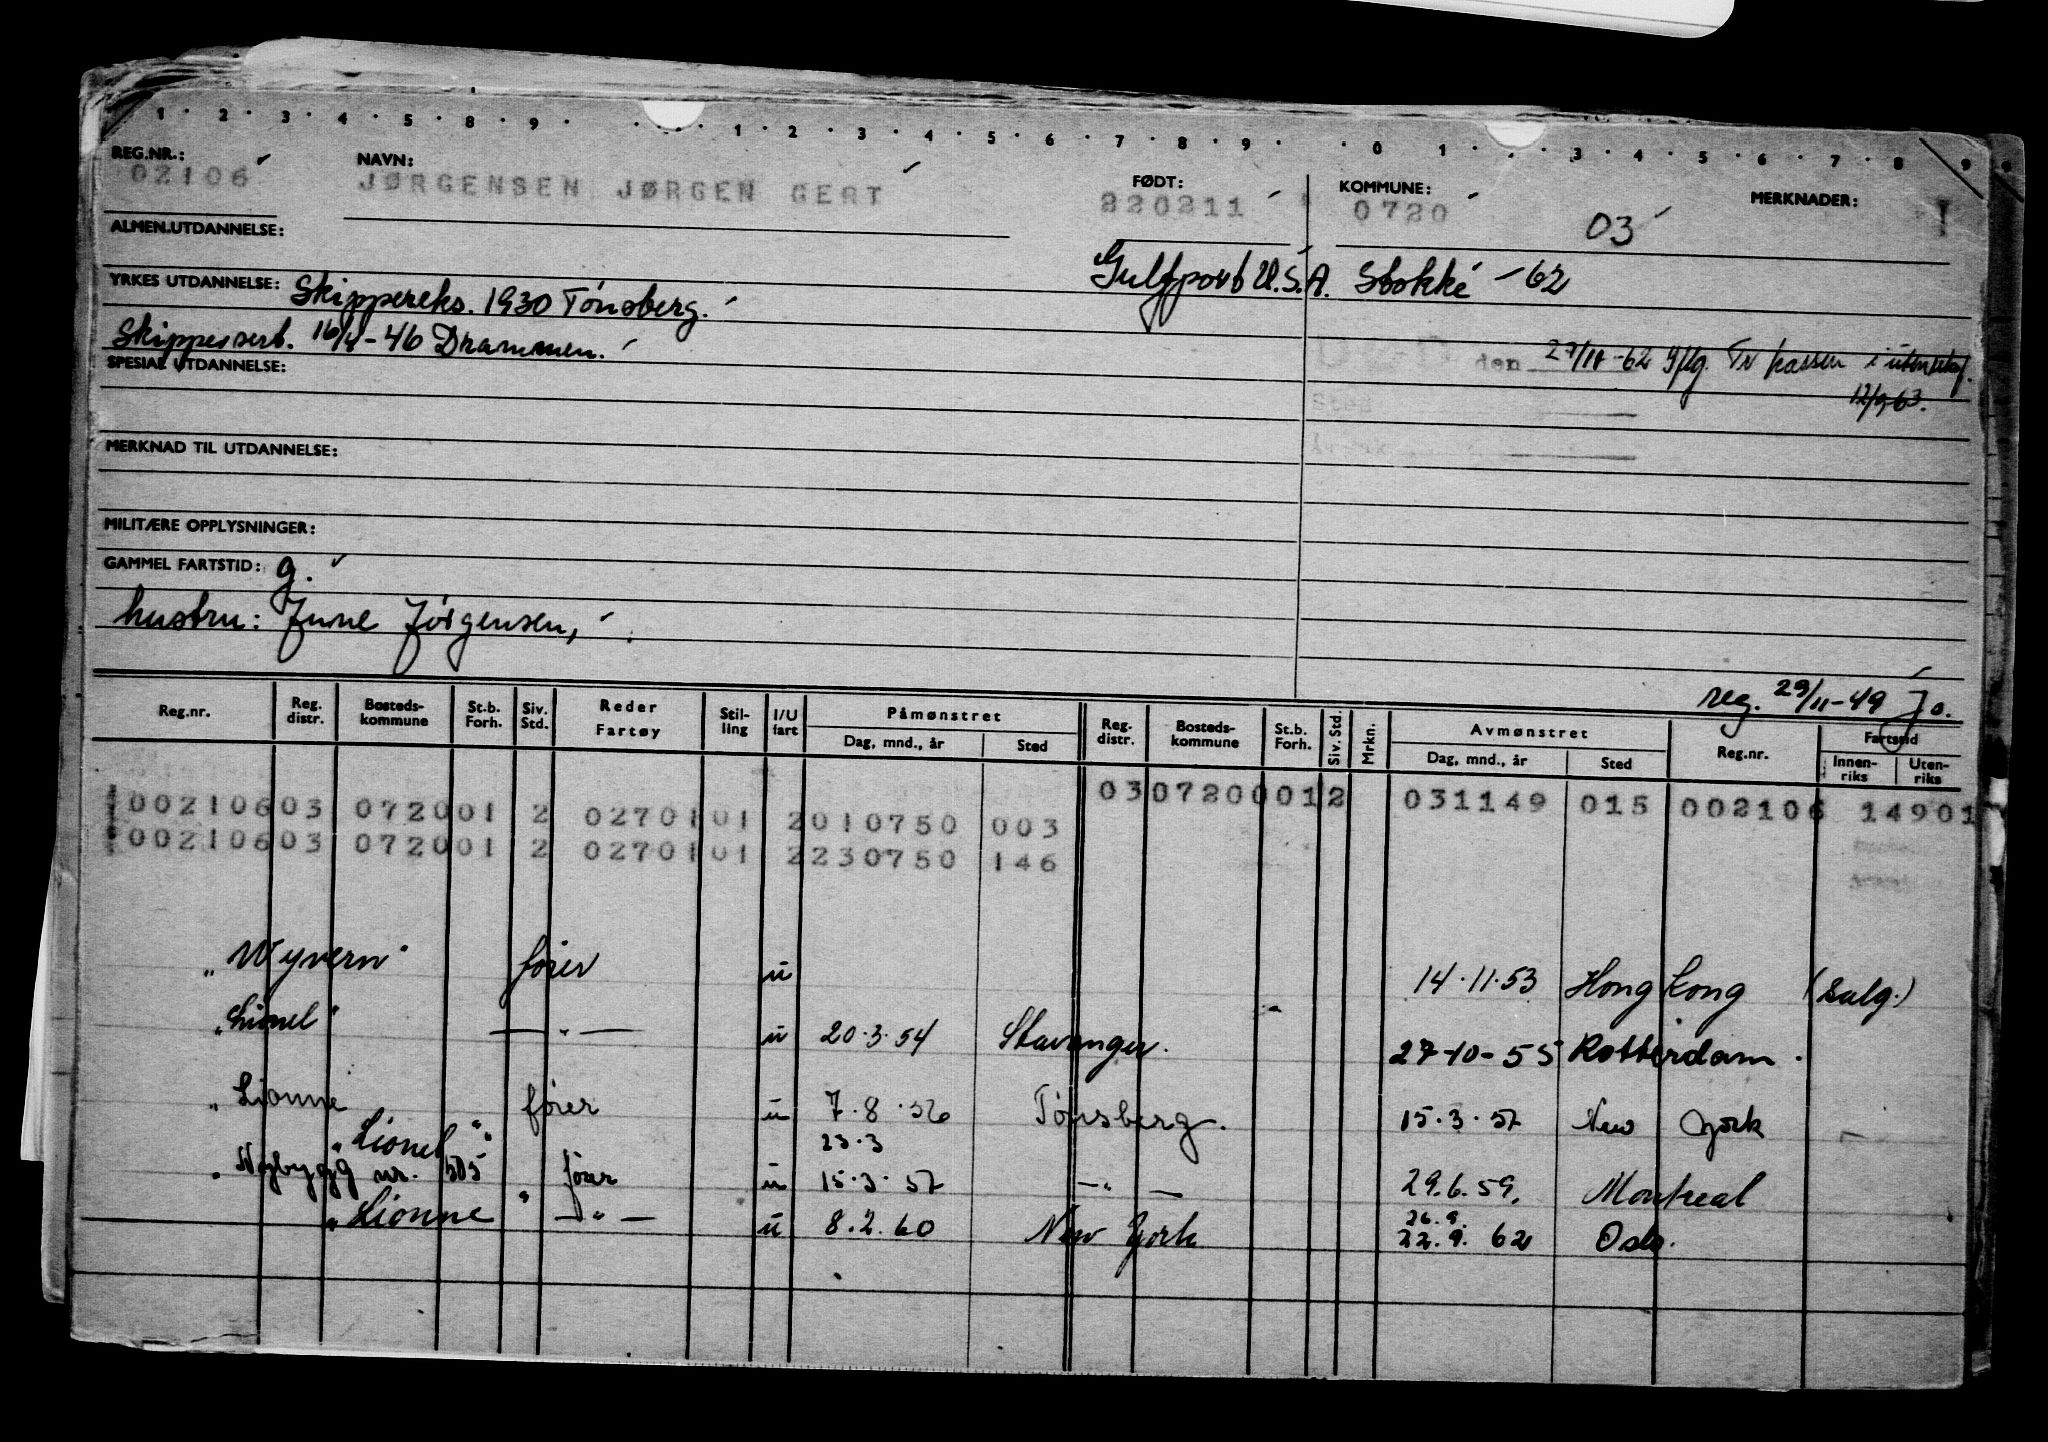 1 · 2 · 3 · 4 · 5 · 8 · 9 · · 1 · 2 · 3 · 4 · 5 · 6 · 7 · 8 · 9 · · 0 · 1 · · 3 · 4 · 5 · 6 · 7 · 8 · 9
REG.NR.: NAVN: FØDT: KOMMUNE: MERKNADER:
02106 JØRGENSEN JØRGEN GERT 220211 0720 03
ALMEN.UTDANNELSE:
Gulfport U.S.A. Stokke -62
YRKES UTDANNELSE: Skippereks. 1930 Tønsberg.
Skippersert. 16/4-46 Drammen.
den 27/11-62 Tr passer i
12/9 63.
SPESIAL UTDANNELSE:
MERKNAD TIL UTDANNELSE:
MILITÆRE OPPLYSNINGER:
GAMMEL FARTSTID: g.
hustru: June Jørgensen,
reg. 29/11-49 Jo.
Reg.nr. Reg. distr. Bosteds-kommune St.b. Forh. Siv. Std. Reder Fartøy Stil-ling I/U fart Påmønstret Dag, mnd., år Sted Reg. distr. Bosteds-kommune St.b. Forh. Siv. Std. Mrkn. Avmønstret Dag, mnd., år Sted Reg.nr. Fartstid Innen-riks Uten-riks
03 0720 001 2 031149 015 002106 14901
002106 03 0720 01 2 02701 01 2 010750 003
002106 03 0720 01 2 02701 01 2 230750 146
"Wyvern" fører u 14.11.53 Hong Kong (salg.)
"Lionel" — " — u 20.3.54 Stavanger. 27-10-55 Rotterdam.
"Lionne" fører u 7.8.56 Tønsberg. 15.3.57 New York
"Lionel" 23.3
"Nybygg nr. 505" fører u 15.3.57 — " — 29.6.59. Montreal
26.9.
"Lionne" — " — u 8.2.60 New York 22.9.62 Oslo.